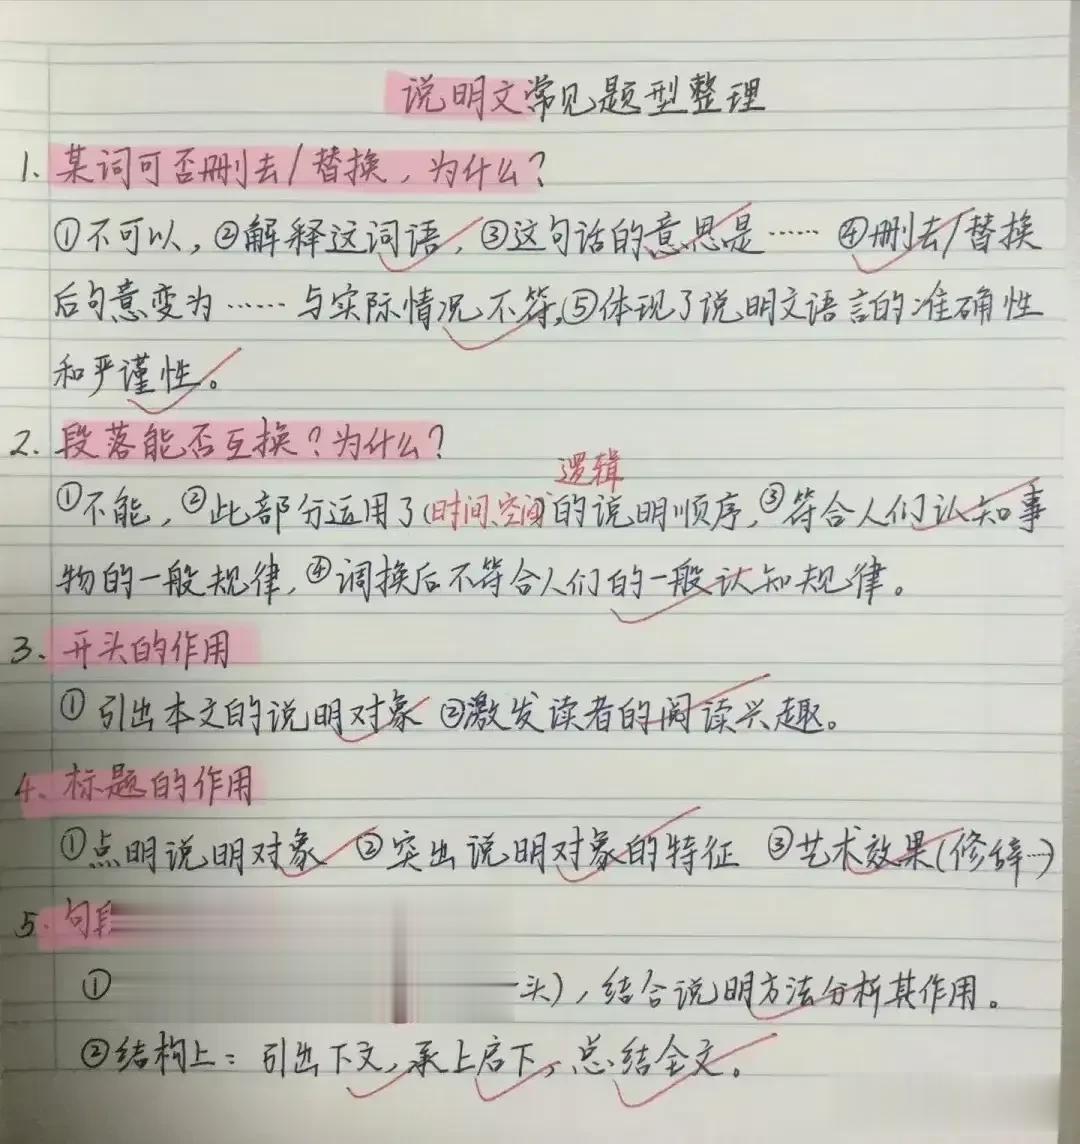 说明文常见题型整理
1. 某词可否删去/替换，为什么？
①不可以，②解释这词语，③这句话的意思是…… ④删去/替换
后句意变为……与实际情况不符，⑤体现了说明文语言的准确性
和严谨性。
2. 段落能否互换？为什么？
逻辑
①不能，②此部分运用了(时间、空间)的说明顺序，③符合人们认知事
物的一般规律，④调换后不符合人们的一般认知规律。
3、开头的作用
①引出本文的说明对象 ②激发读者的阅读兴趣。
4、标题的作用
①点明说明对象 ②突出说明对象的特征 ③艺术效果(修辞…)
5. 句
① 头)，结合说明方法分析其作用。
②结构上：引出下文，承上启下，总结全文。